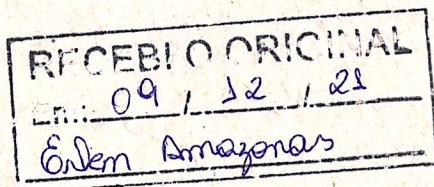 RECEBI O ORIGINAL
Em: 09 / 12 / 21
Amazonas